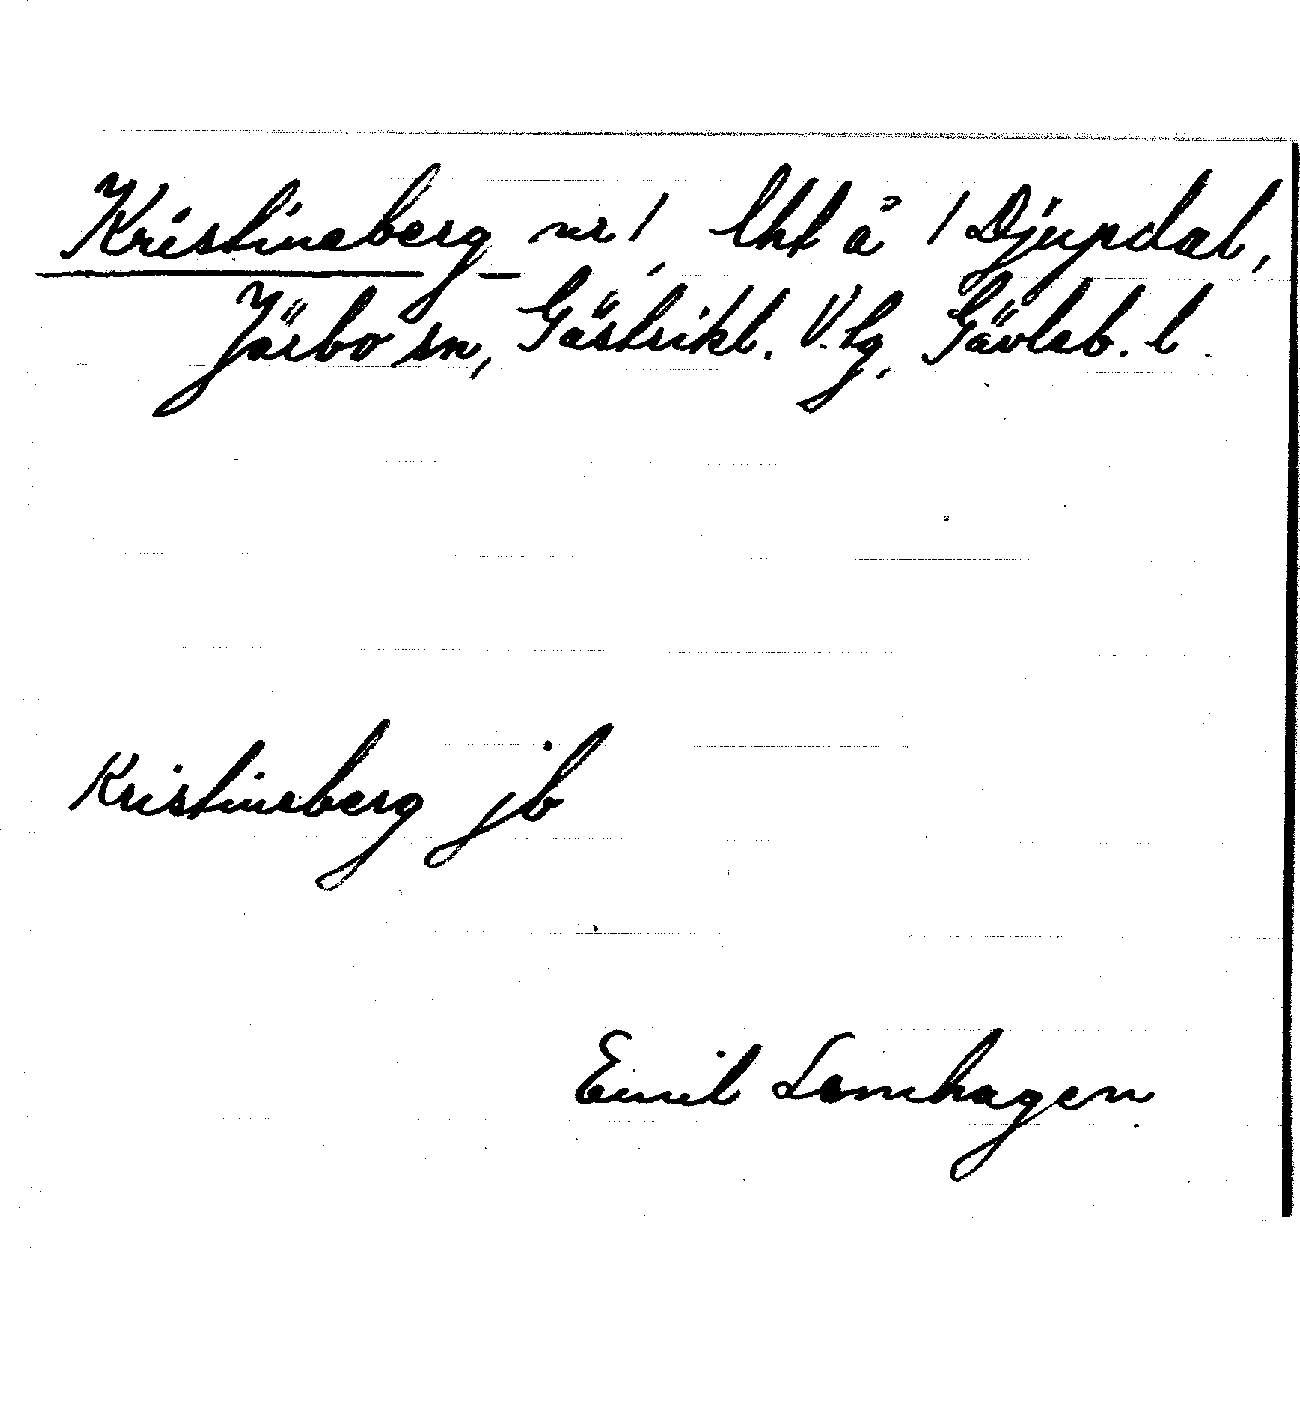 Kristineberg nr 1, lht å 1 Djupdal,
Järbo sn, Gästrikl. V. tg, Gävleb. l.
Kristineberg jb
Emil Lamhagen